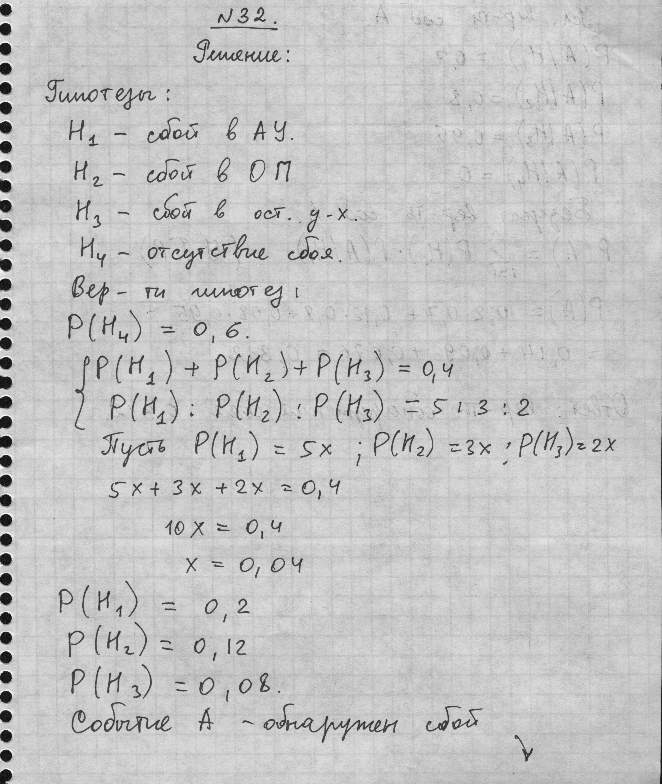 №32.
Решение:
Гипотезы:
H₁ – сбой в АУ.
H₂ – сбой в ОП
H₃ – сбой в ост. у-х.
H₄ – отсутствие сбоя.
Вер-ти гипотез:
P(H₄) = 0,6.
P(H₁) + P(H₂) + P(H₃) = 0,4
P(H₁) : P(H₂) : P(H₃) = 5 : 3 : 2
Пусть P(H₁) = 5x ; P(H₂) = 3x ; P(H₃) = 2x
5x + 3x + 2x = 0,4
10x = 0,4
x = 0,04
P(H₁) = 0,2
P(H₂) = 0,12
P(H₃) = 0,08.
Событие A – обнаружен сбой